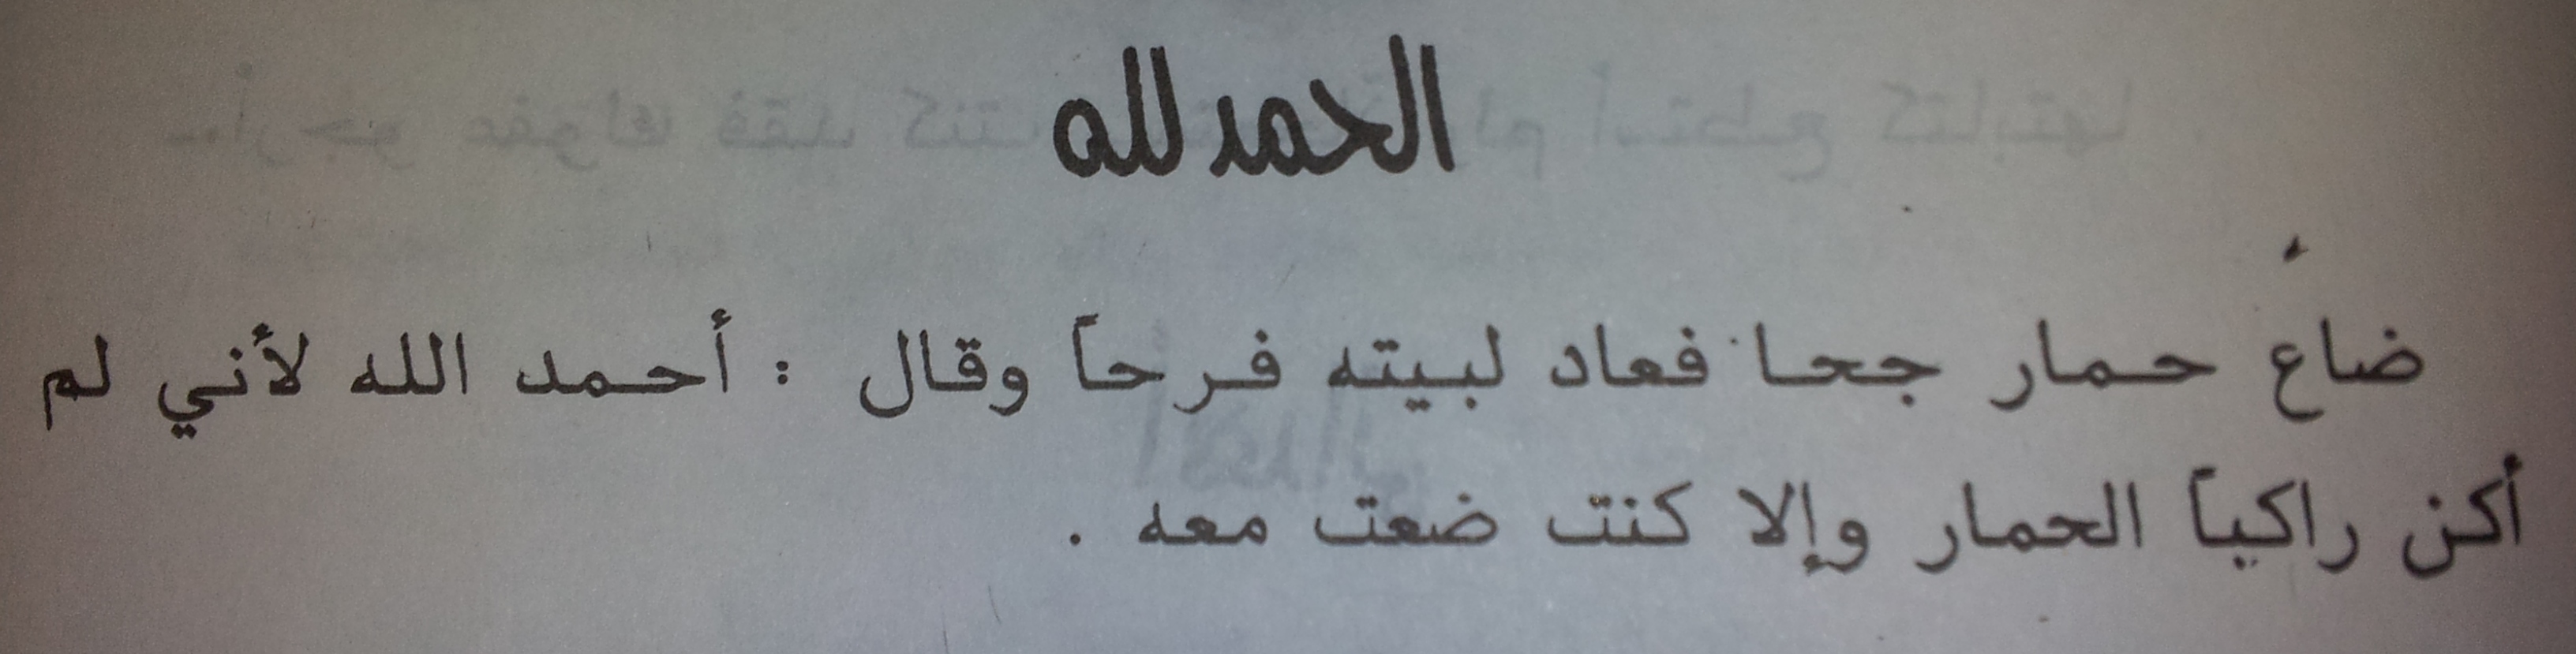 الحمد لله
ضاع حمار جحا فعاد لبيته فرحاً وقال : أحمد الله لأني لم
أكن راكباً الحمار وإلا كنت ضعت معه .